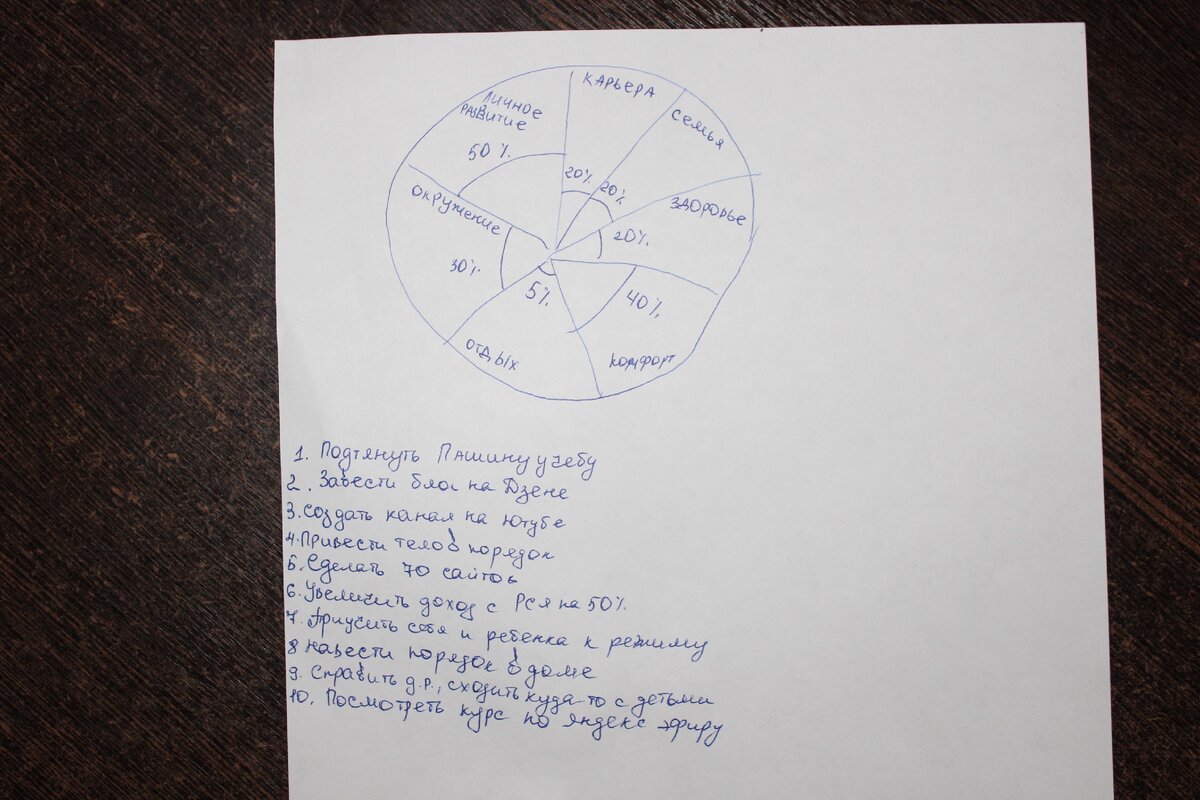 КАРЬЕРА
СЕМЬЯ
ЛИЧНОЕ
РАЗВИТИЕ
50 %.
20%.
20%
ЗДОРОВЬЕ
20%.
ОКРУЖЕНИЕ
30%.
5%.
40%.
ОТДЫХ
КОМФОРТ
1. Подтянуть Пашину учебу
2. Завести блог на Дзене
3. Создать канал на Ютубе
4. Привести тело в порядок
5. Сделать 70 сайтов
6. Увеличить доход с Рся на 50%.
7. Приучить себя и ребенка к режиму
8 Навести порядок в доме
9. Справить д.р., сходить куда то с детьми
10. Посмотреть курс по яндекс эфиру